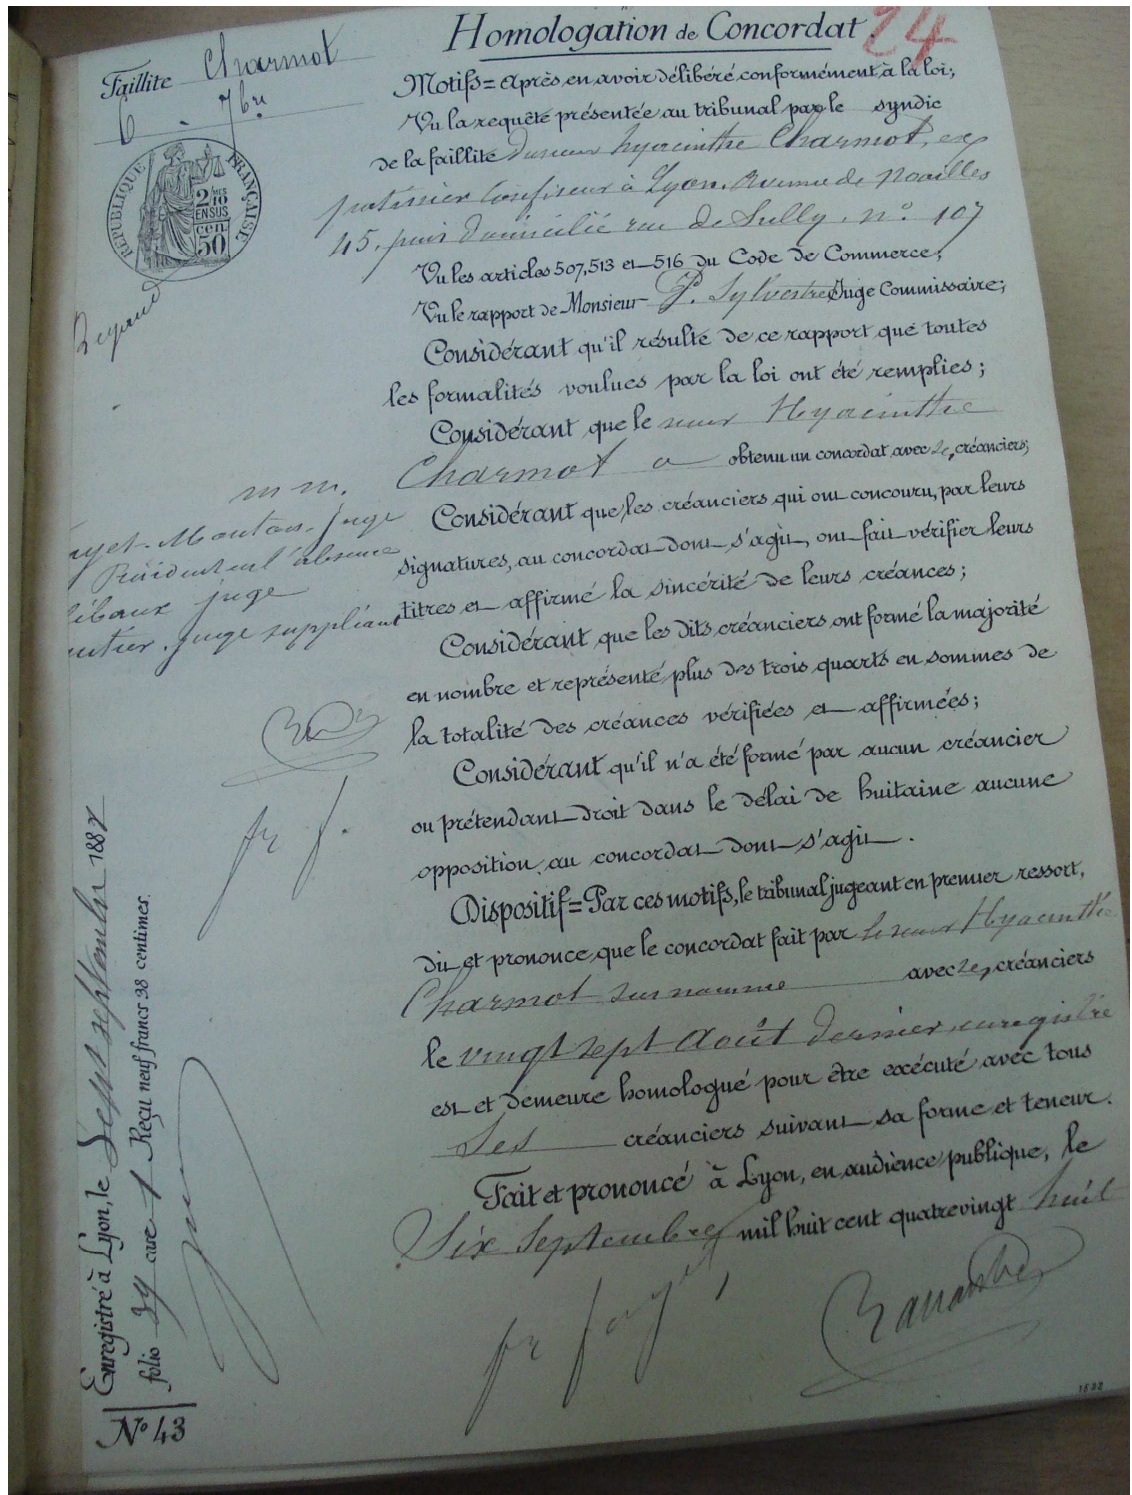 Homologation de Concordat
24
Faillite Charmot
6 - 7bre
RÉPUBLIQUE FRANÇAISE
2/10
EN SUS
50 cen
Motifs = Après en avoir délibéré conformément à la loi;
Vu la requête présentée au tribunal par le syndic
de la faillite du sieur hyacinthe Charmot, ex
patissier confiseur à Lyon, avenue de Noailles
45, puis domicilié rue de Sully, n° 107
Vu les articles 507, 513 et 516 du Code de Commerce;
Vu le rapport de Monsieur P. Sylvestre Juge Commissaire;
Considérant qu'il résulte de ce rapport que toutes
les formalités voulues par la loi ont été remplies;
Considérant que le sieur Hyacinthe
Charmot a obtenu un concordat avec ses créanciers;
Considérant que les créanciers qui ont concouru, par leurs
signatures, au concordat dont s'agit, ont fait vérifier leurs
titres et affirmé la sincérité de leurs créances;
Considérant que les dits créanciers ont formé la majorité
en nombre et représenté plus des trois quarts en sommes de
la totalité des créances vérifiées et affirmées;
Considérant qu'il n'a été formé par aucun créancier
ou prétendant droit dans le délai de huitaine aucune
opposition au concordat dont s'agit.
Dispositif = Par ces motifs, le tribunal jugeant en premier ressort,
dit et prononce que le concordat fait par le sieur Hyacinthe
Charmot susnommé avec ses créanciers
le vingt sept Août dernier, enregistré
est et demeure homologué pour être exécuté avec tous
ses créanciers suivant sa forme et teneur.
Fait et prononcé à Lyon, en audience publique, le
Six Septembre mil huit cent quatrevingt huit
m m.
Juge
Président en l'absence
juge
juge suppliant
Enregistré à Lyon, le Sept septembre 1888
folio 39 case 1 Reçu neuf francs 38 centimes.
N° 43
1532